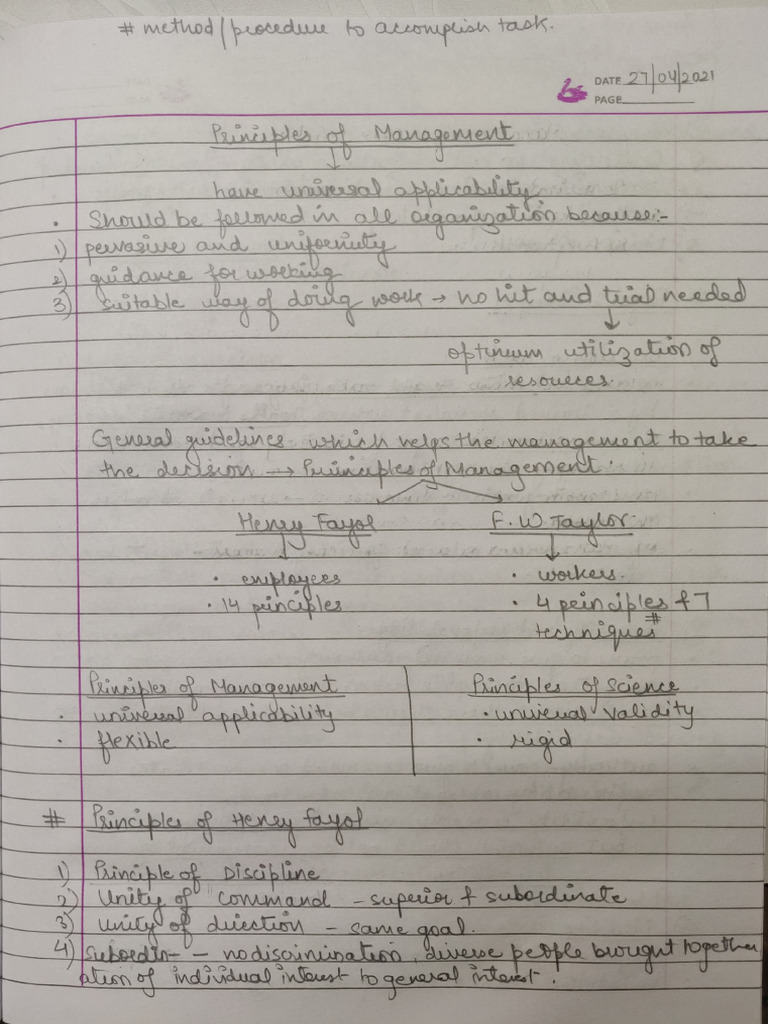 # method/procedure to accomplish task.
DATE 27/04/2021
PAGE
Principles of Management
↓
have universal applicability
• Should be followed in all organization because:-
1) pervasive and uniformity
2) guidance for working
3) suitable way of doing work → no hit and trial needed
↓
optimum utilization of
resources.
General guidelines which helps the management to take
the decision → Principles of Management.
Henry Fayol F. W Taylor
↓ ↓
• employees • workers.
• 14 principles • 4 principles & 7
techniques#
Principles of Management Principles of Science
• universal applicability • universal validity
• flexible • rigid
# Principles of Henry Fayol
1) Principle of Discipline
2) Unity of command - superior & subordinate
3) Unity of direction - same goal.
4) Subordin- - no discrimination, diverse people brought together
ation of individual interest to general interest.